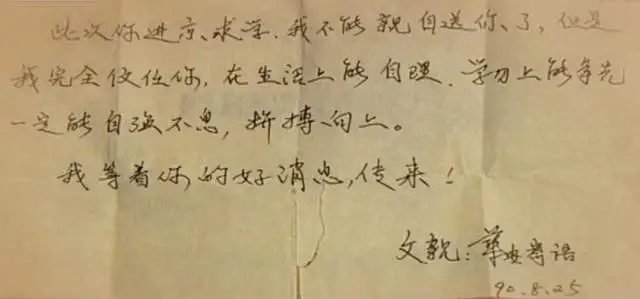 此次你进京、求学.我不能親自送你、了,但是
我完全信任你,在生活上能自理.学习上能争先
一定能自强不息,拼搏向上。
我等着你的好消息,传来!
父親:寄语
90.8.25